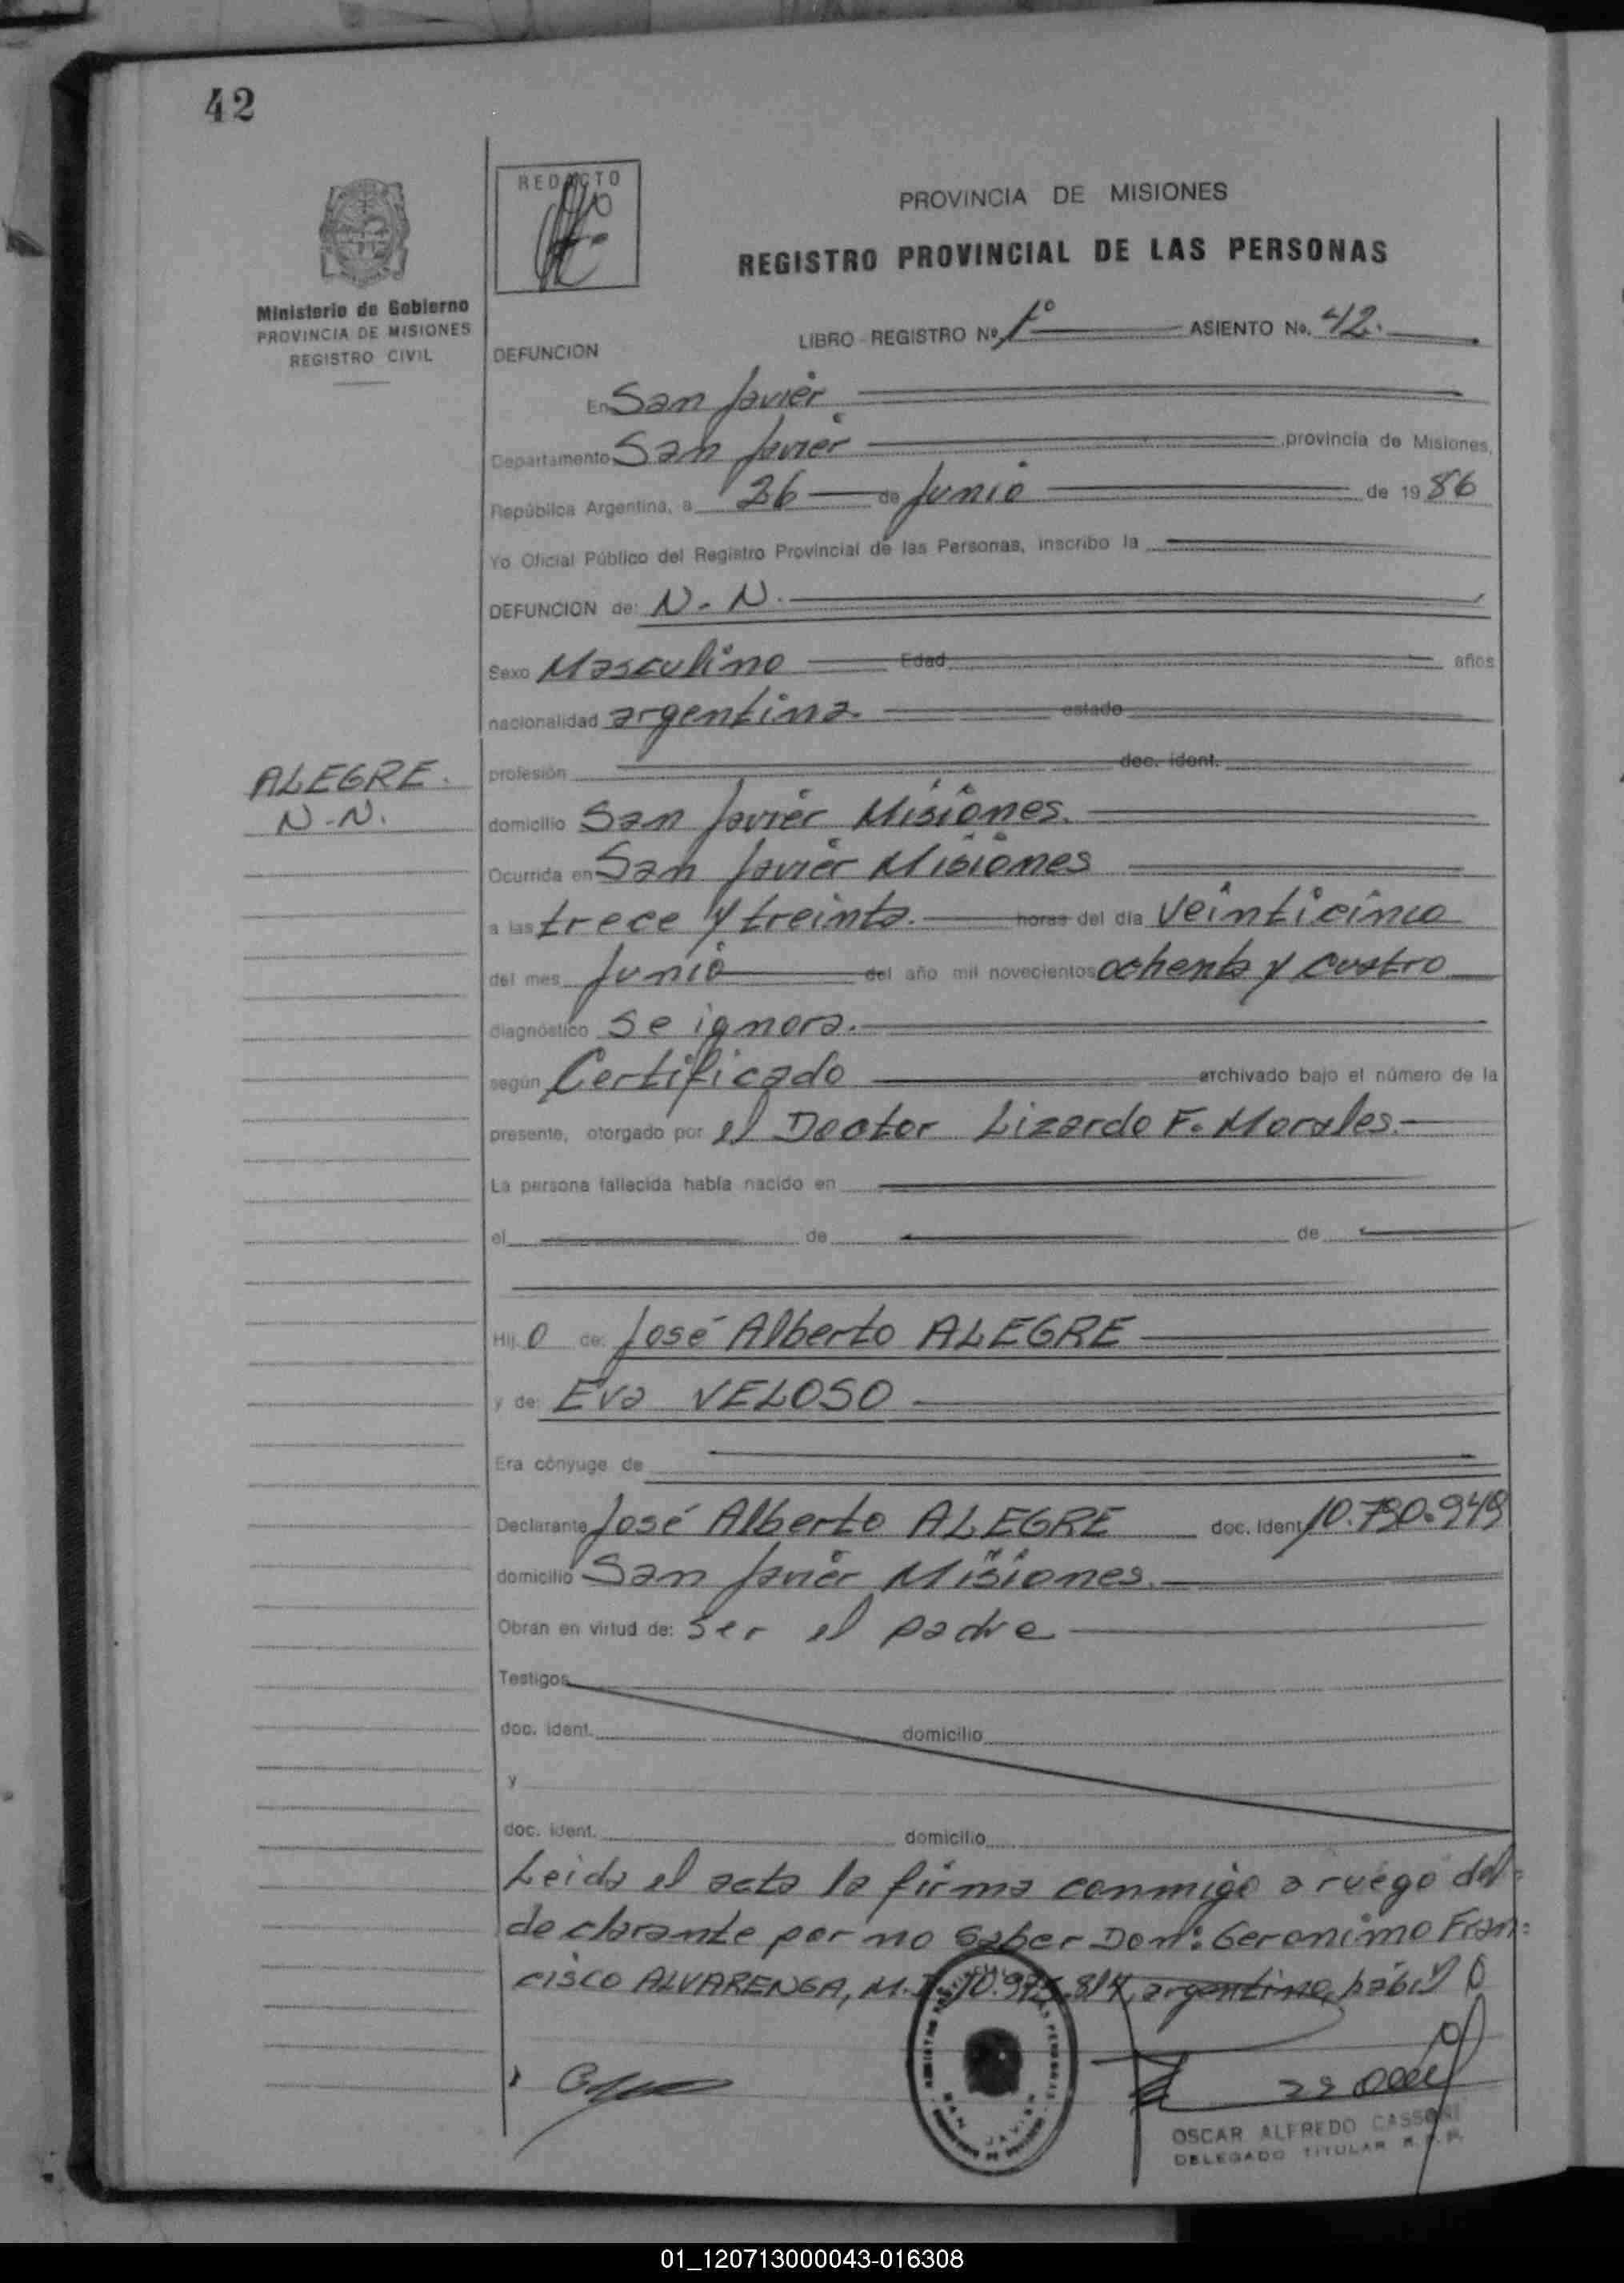 42
REDACTO
PROVINCIA DE MISIONES
REGISTRO PROVINCIAL DE LAS PERSONAS
Ministerio de Gobierno
PROVINCIA DE MISIONES
REGISTRO CIVIL
LIBRO - REGISTRO Nº 1º ASIENTO No. 42.
DEFUNCION
En San Javier
Departamento San Javier provincia de Misiones,
República Argentina, a 26 de Junio de 1986
Yo Oficial Público del Registro Provincial de las Personas, inscribo la
DEFUNCION de: N-N.
Sexo Masculino Edad años
nacionalidad argentina. estado
ALEGRE.
N-N.
profesión doc. ident.
domicilio San Javier Misiones.
Ocurrida en San Javier Misiones
a las trece y treinta. horas del día veinticinco
del mes Junio del año mil novecientos ochenta y cuatro
diagnóstico se ignora.
según Certificado archivado bajo el número de la
presente, otorgado por el Doctor Lizardo F. Morales.
La persona fallecida había nacido en
el de de
Hij o de: José Alberto ALEGRE
y de: Eva VELOSO
Era cónyuge de
Declarante José Alberto ALEGRE doc. Ident 10.790.949
domicilio San Javier Misiones.
Obran en virtud de: ser el padre
Testigos
doc. ident. domicilio
y
doc. ident. domicilio
Leida el acta la firma conmigo a ruego del
declarante por no saber Don: Geronimo Fran-
cisco ALVARENGA, M.I. 10.975.814, argentino, hábil
SAN JAVIER
OSCAR ALFREDO CASSONI
DELEGADO TITULAR R.P.P.
01_120713000043-016308